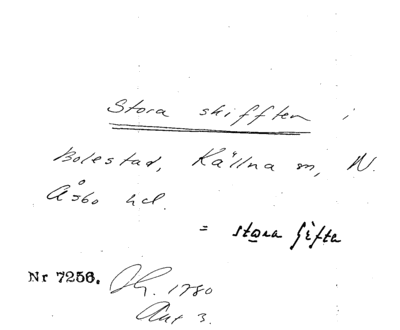 Stora skifften i
Bolestad, Källna sn, N.
Åsbo hd.
= stora Gifta
Nr 7256. Jh. 1780
Akt 3.